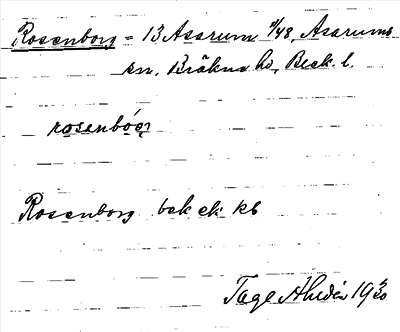 Rosenborg = 13 Asarum 11/48, Asarums
sn, Bräkne hd, Blek. l.
rosenbóŗ
Rosenborg bek ek kb
Tage Ahldén 1930